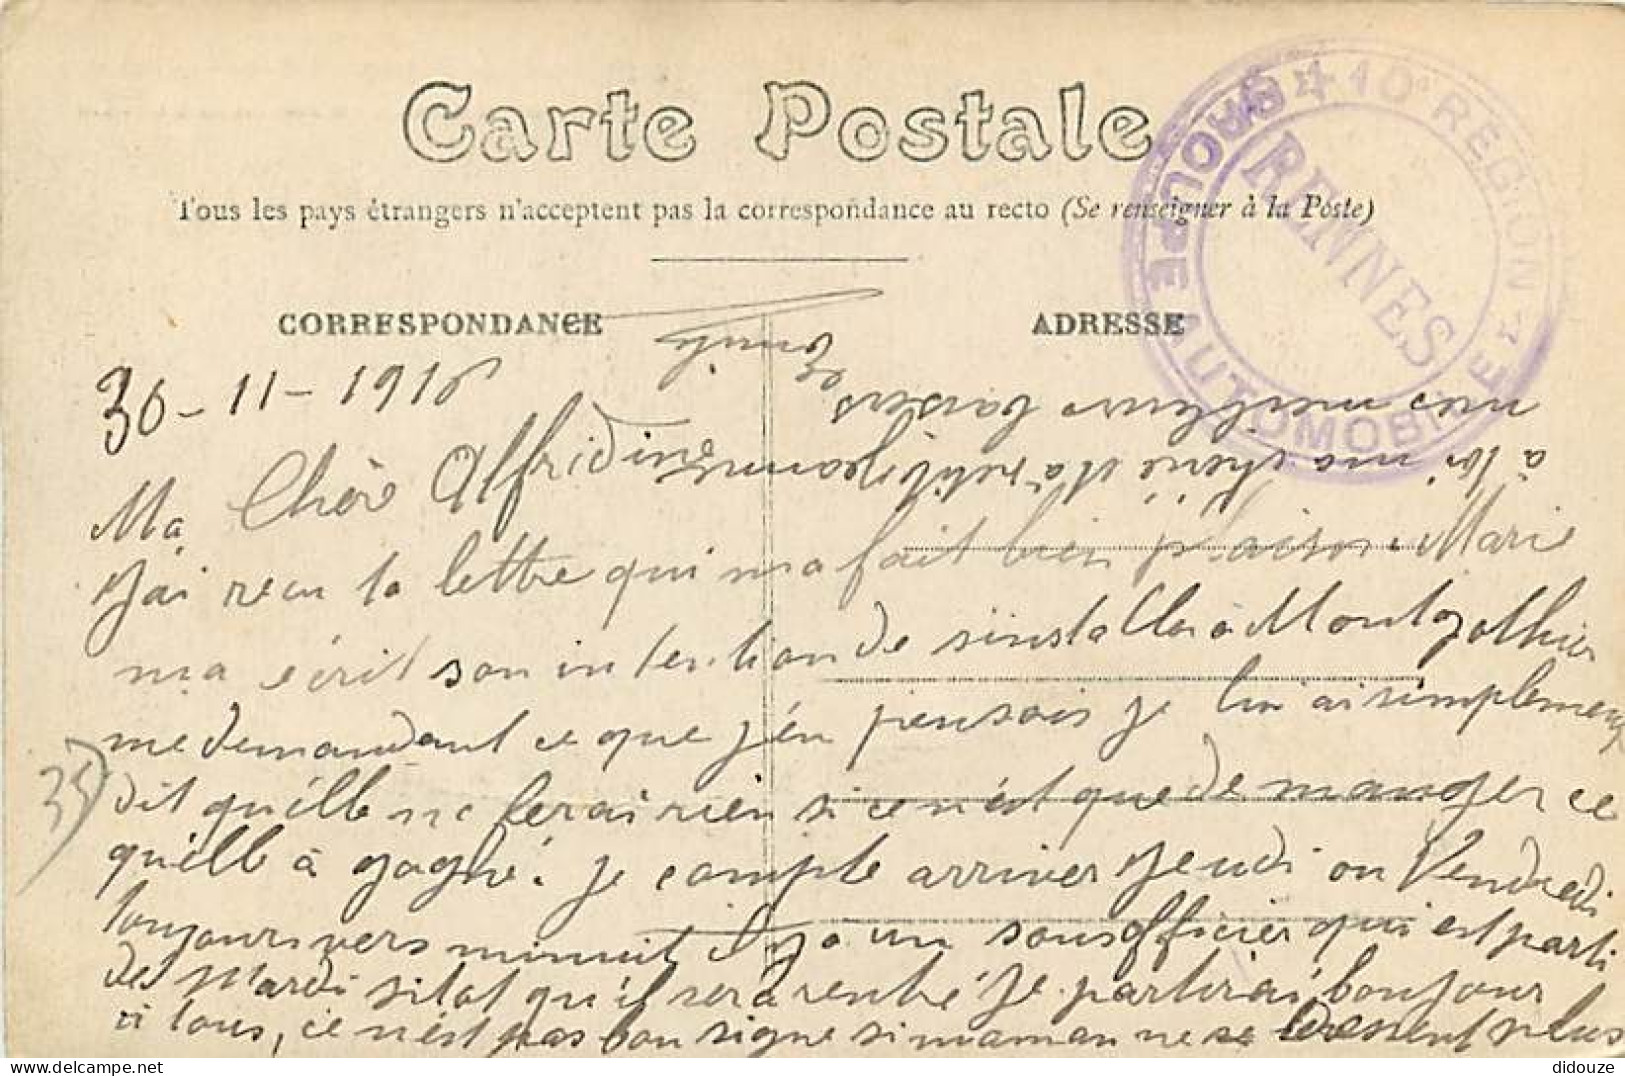 Carte Postale
Tous les pays étrangers n'acceptent pas la correspondance au recto (Se renseigner à la Poste)
CORRESPONDANCE
ADRESSE
★ 10e RÉGION ★
GROUPE AUTOMOBILE
RENNES
30-11-1916
Ma Chère Alfridine
J'ai recu ta lettre qui ma fait bien plaisir. Marie
ma écrit son intention de sinstaller à Montgothier
me demandant ce que j'en pensais je lui ai simplement
dit qu'élle ne ferai rien si ce n'ést que de manger ce
qu'élle à gagné. je compte arriver Jeudi ou Vendredi
toujours vers minuit il y a un sous officier qui est parti
des Mardi sitot qu'il sera rentré je partirai bonjour
à tous, ce n'est pas bon signe si maman ne se plus
à toi ma chérie
mes meilleurs baisers
35
didouze